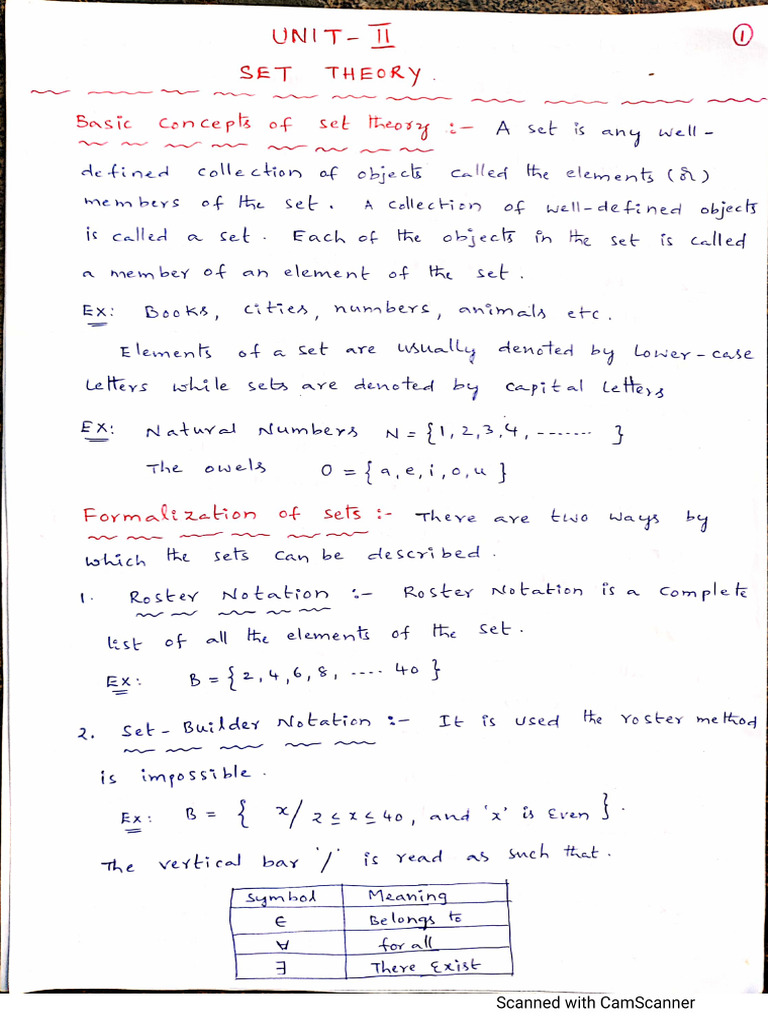 UNIT - II
①
SET THEORY.
Basic Concepts of set theory :- A set is any well-
defined collection of objects called the elements (or)
members of the set. A collection of well-defined objects
is called a set. Each of the objects in the set is called
a member of an element of the set.
Ex: Books, cities, numbers, animals etc.
Elements of a set are usually denoted by Lower-case
Letters while sets are denoted by capital Letters
Ex: Natural Numbers N = {1, 2, 3, 4, ....... }
The owels O = {a, e, i, o, u}
Formalization of sets :- There are two ways by
which the sets can be described.
1. Roster Notation :- Roster Notation is a complete
list of all the elements of the set.
Ex: B = {2, 4, 6, 8, .... 40}
2. Set - Builder Notation :- It is used the roster method
is impossible.
Ex: B = { x/ 2 ≤ x ≤ 40, and 'x' is Even }.
The vertical bar '/' is read as such that.
Symbol Meaning
∈ Belongs to
∀ for all
∃ There Exist
Scanned with CamScanner